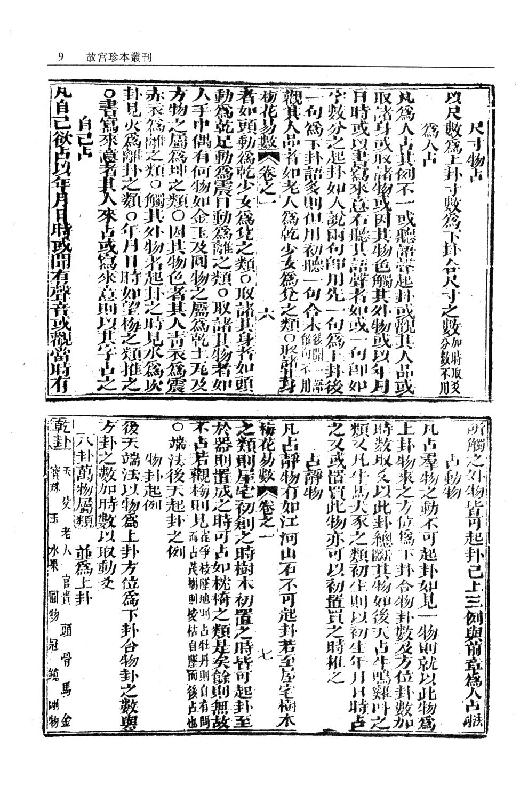 9 故宮珍本叢刊
尺寸物占
以尺數爲上卦寸數爲下卦合尺寸之數加時取爻分數不用
爲人占
凡爲人占其例不一或聽語聲起卦或觀其人品或
取諸身或取諸物或因其物色觸其外物或以年月
日時或以書寫來意右聽其語聲者如或一句即如
字數分之起卦如人說兩句即用先一句爲上卦後
一句爲下卦語多則但用初聽一句
觀其人品者如老人爲乾少女爲兌之類○取諸身
梅花易數 卷之一 六
者如頭動爲乾足動爲震目動爲離之類○取諸物者如
人手中偶有何物如金玉及圓物之屬爲乾土瓦及
方物之屬爲坤之類○因其物色者其人青衣爲震
赤衣爲離之類○觸其外物者起卦之時見水爲坎
卦見火爲離卦之類○年月日時如觀梅之類推之
○書寫來意者其人來占或寫來意則以其字占之
自己占
凡自己欲占以年月日時或聞有聲音或觀當時有
所觸之外物皆可起卦已上三例與前章爲人占法同
占動物
凡占羣物之動不可起卦如見一物則就以此物爲
上卦物來之方位爲下卦合物卦數及方位卦數加
時數取爻以此卦總斷其物如後天占牛鳴雞叫之
類又凡牛馬犬豕之類初生則以初生年月日時占
之又或置買此物亦可以初置買之時推之
占靜物
凡占靜物有如江河山石不可起卦若至屋宅樹木
梅花易數 卷之一 七
之類則屋宅初創之時樹木初置之時皆可起卦至
於器則置成之時可占如枕椅之類是矣餘則無故
不占若觀梅則見雀爭枝墜地則占牡丹則自有問而占茂樹則枝枯自墮而後占也
○端法後天起卦之例
物卦起例
後天端法以物爲上卦方位爲下卦合物卦之數與
方卦之數加時數以取動爻
八卦萬物屬類 並爲上卦
乾卦 天 父 老人 官貴 頭 骨 馬 金
寶珠 玉 水果 圓物 冠 鏡 剛物